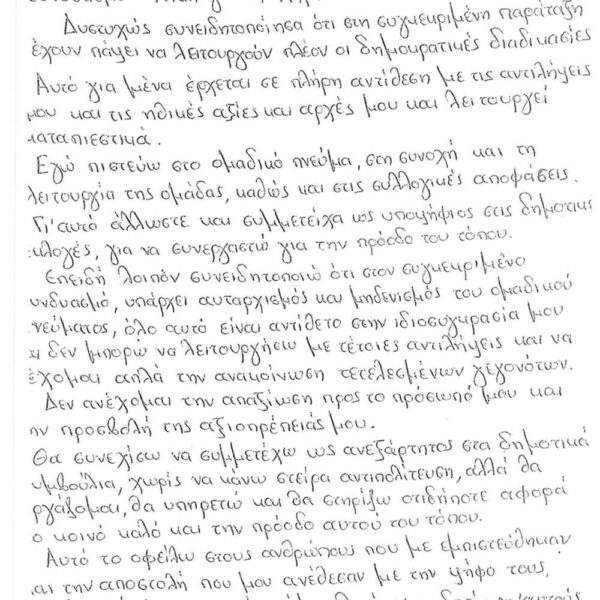 Δυστυχώς συνειδητοποίησα ότι στη συγκεκριμένη παράταξη
έχουν πάψει να λειτουργούν πλέον οι δημοκρατικές διαδικασίες
Αυτό για μένα έρχεται σε πλήρη αντίθεση με τις αντιλήψεις
μου και τις ηθικές αξίες και αρχές μου και λειτουργεί
καταπιεστικά.
Εγώ πιστεύω στο ομαδικό πνεύμα, στη συνοχή και τη
λειτουργία της ομάδας, καθώς και στις συλλογικές αποφάσεις.
Γι' αυτό άλλωστε και συμμετείχα ως υποψήφιος στις δημοτικέ
κλογές, για να συνεργαστώ για την πρόοδο του τόπου.
Επειδή λοιπόν συνειδητοποιώ ότι στον συγκεκριμένο
υνδυασμό, υπάρχει αυταρχισμός και μηδενισμός του ομαδικού
νεύματος, όλο αυτό είναι αντίθετο στην ιδιοσυγκρασία μου
αι δεν μπορώ να λειτουργήσω με τέτοιες αντιλήψεις και να
έχομαι απλά την ανακοίνωση τετελεσμένων γεγονότων.
Δεν ανέχομαι την απαξίωση προς το πρόσωπό μου και
ην προσβολή της αξιοπρέπειάς μου.
Θα συνεχίσω να συμμετέχω ως ανεξάρτητος στα δημοτικά
υμβούλια, χωρίς να κάνω στείρα αντιπολίτευση, αλλά θα
ργάζομαι, θα υπηρετώ και θα στηρίζω οτιδήποτε αφορά
ο κοινό καλό και την πρόοδο αυτού του τόπου.
Αυτό το οφείλω στους ανθρώπους που με εμπιστεύθηκαν
αι την αποστολή που μου ανέθεσαν με την ψήφο τους,